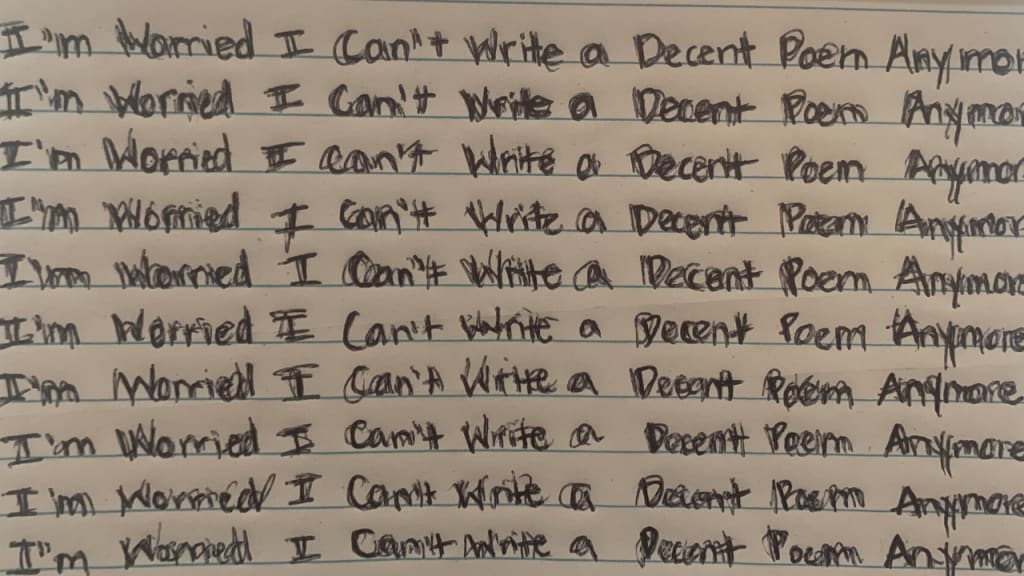 I'm Worried I Can't Write a Decent Poem Anymor
I'm Worried I Can't Write a Decent Poem Anymor
I'm Worried I can't Write a Decent Poem Anymor
I'm Worried I Can't Write a Decent Poem Anymor
I'm Worried I Can't Write a Decent Poem Anymore
I'm Worried I Can't Write a Decent Poem Anymore
I'm Worried I Can't Write a Decent Poem Anymore
I'm Worried I Can't Write a Decent Poem Anymore
I'm Worried I Can't Write a Decent Poem Anymore
I'm Worried I Can't Write a Decent Poem Anymor